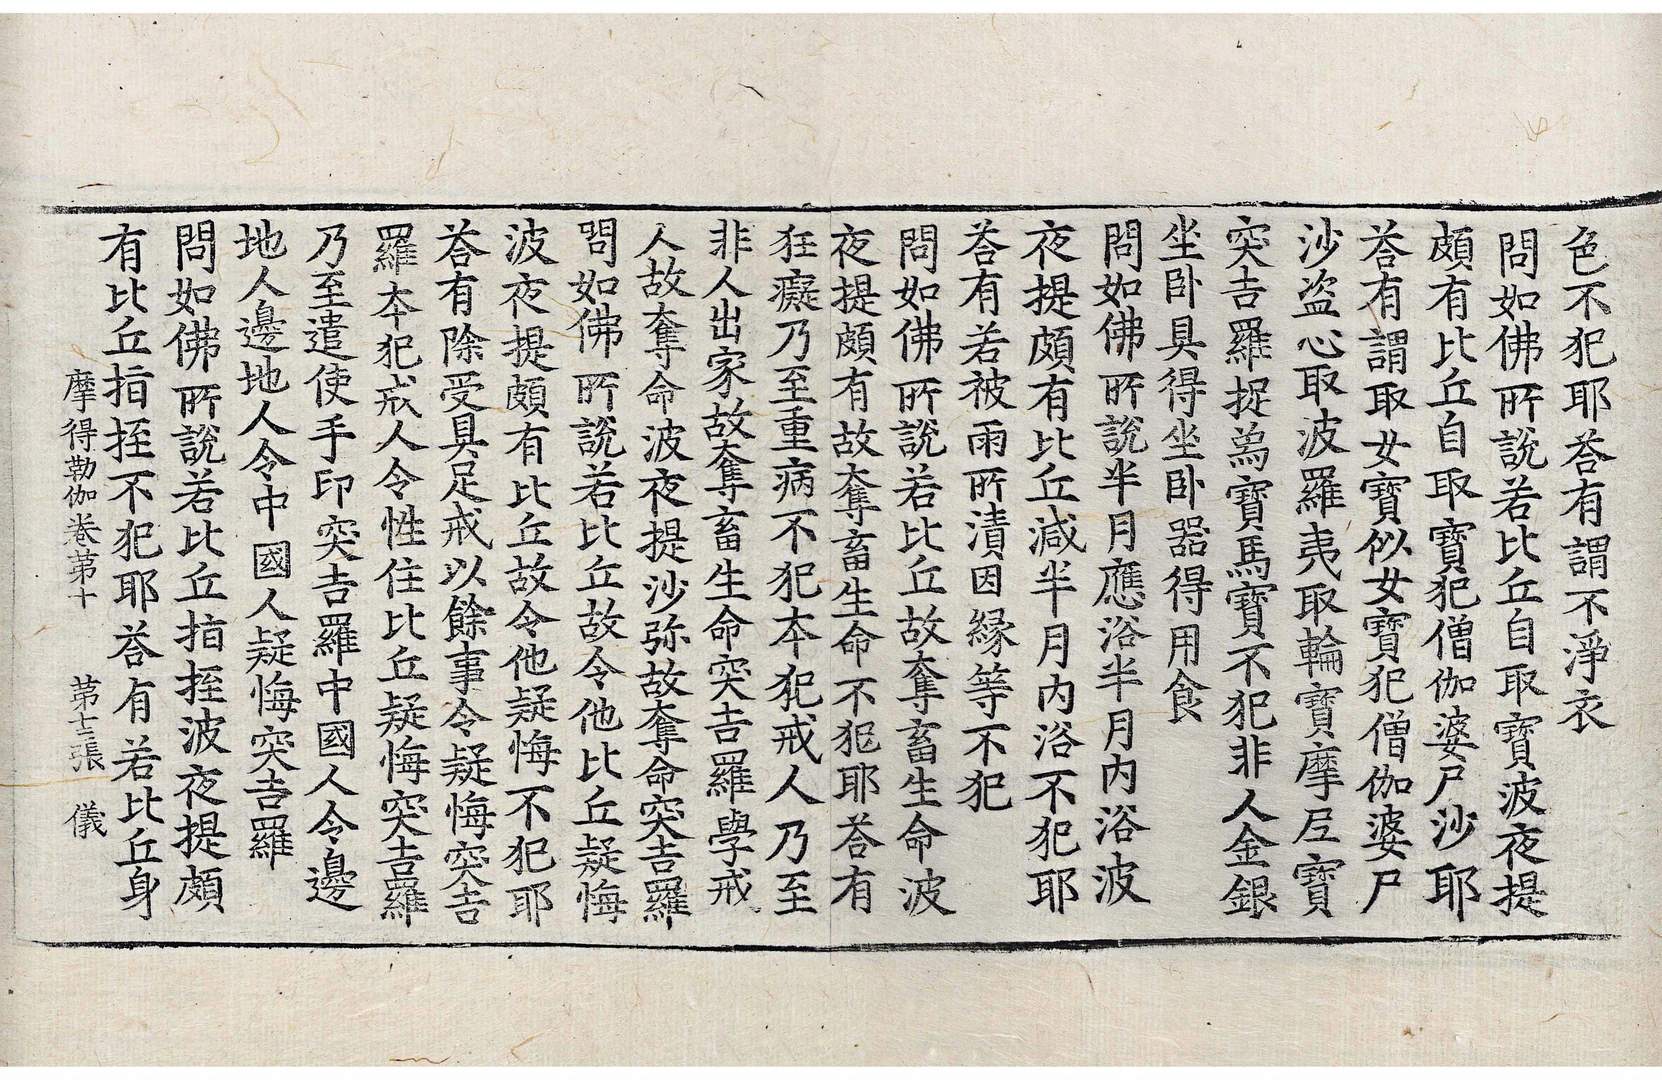 色不犯耶荅有謂不淨衣
問如佛所說若比丘自取寶波夜提
頗有比丘自取寶犯僧伽婆尸沙耶
荅有謂取女寶似女寶犯僧伽婆尸
沙盗心取波羅夷取輪寶摩尼寶
突吉羅捉爲寶馬寶不犯非人金銀
坐卧具得坐卧器得用食
問如佛所說半月應浴半月內浴波
夜提頗有比丘減半月內浴不犯耶
荅有若被雨所漬因緣等不犯
問如佛所說若比丘故奪畜生命波
夜提頗有故奪畜生命不犯耶荅有
狂癡乃至重病不犯本犯戒人乃至
非人出家故奪畜生命突吉羅學戒
人故奪命波夜提沙弥故奪命突吉羅
問如佛所說若比丘故令他比丘疑悔
波夜提頗有比丘故令他疑悔不犯耶
荅有除受具足戒以餘事令疑悔突吉
羅本犯戒人令性住比丘疑悔突吉羅
乃至遣使手印突吉羅中國人令邊
地人邊地人令中國人疑悔突吉羅
問如佛所說若比丘指挃波夜提頗
有比丘指挃不犯耶荅有若比丘身
摩得勒伽卷第十 第十二張 儀